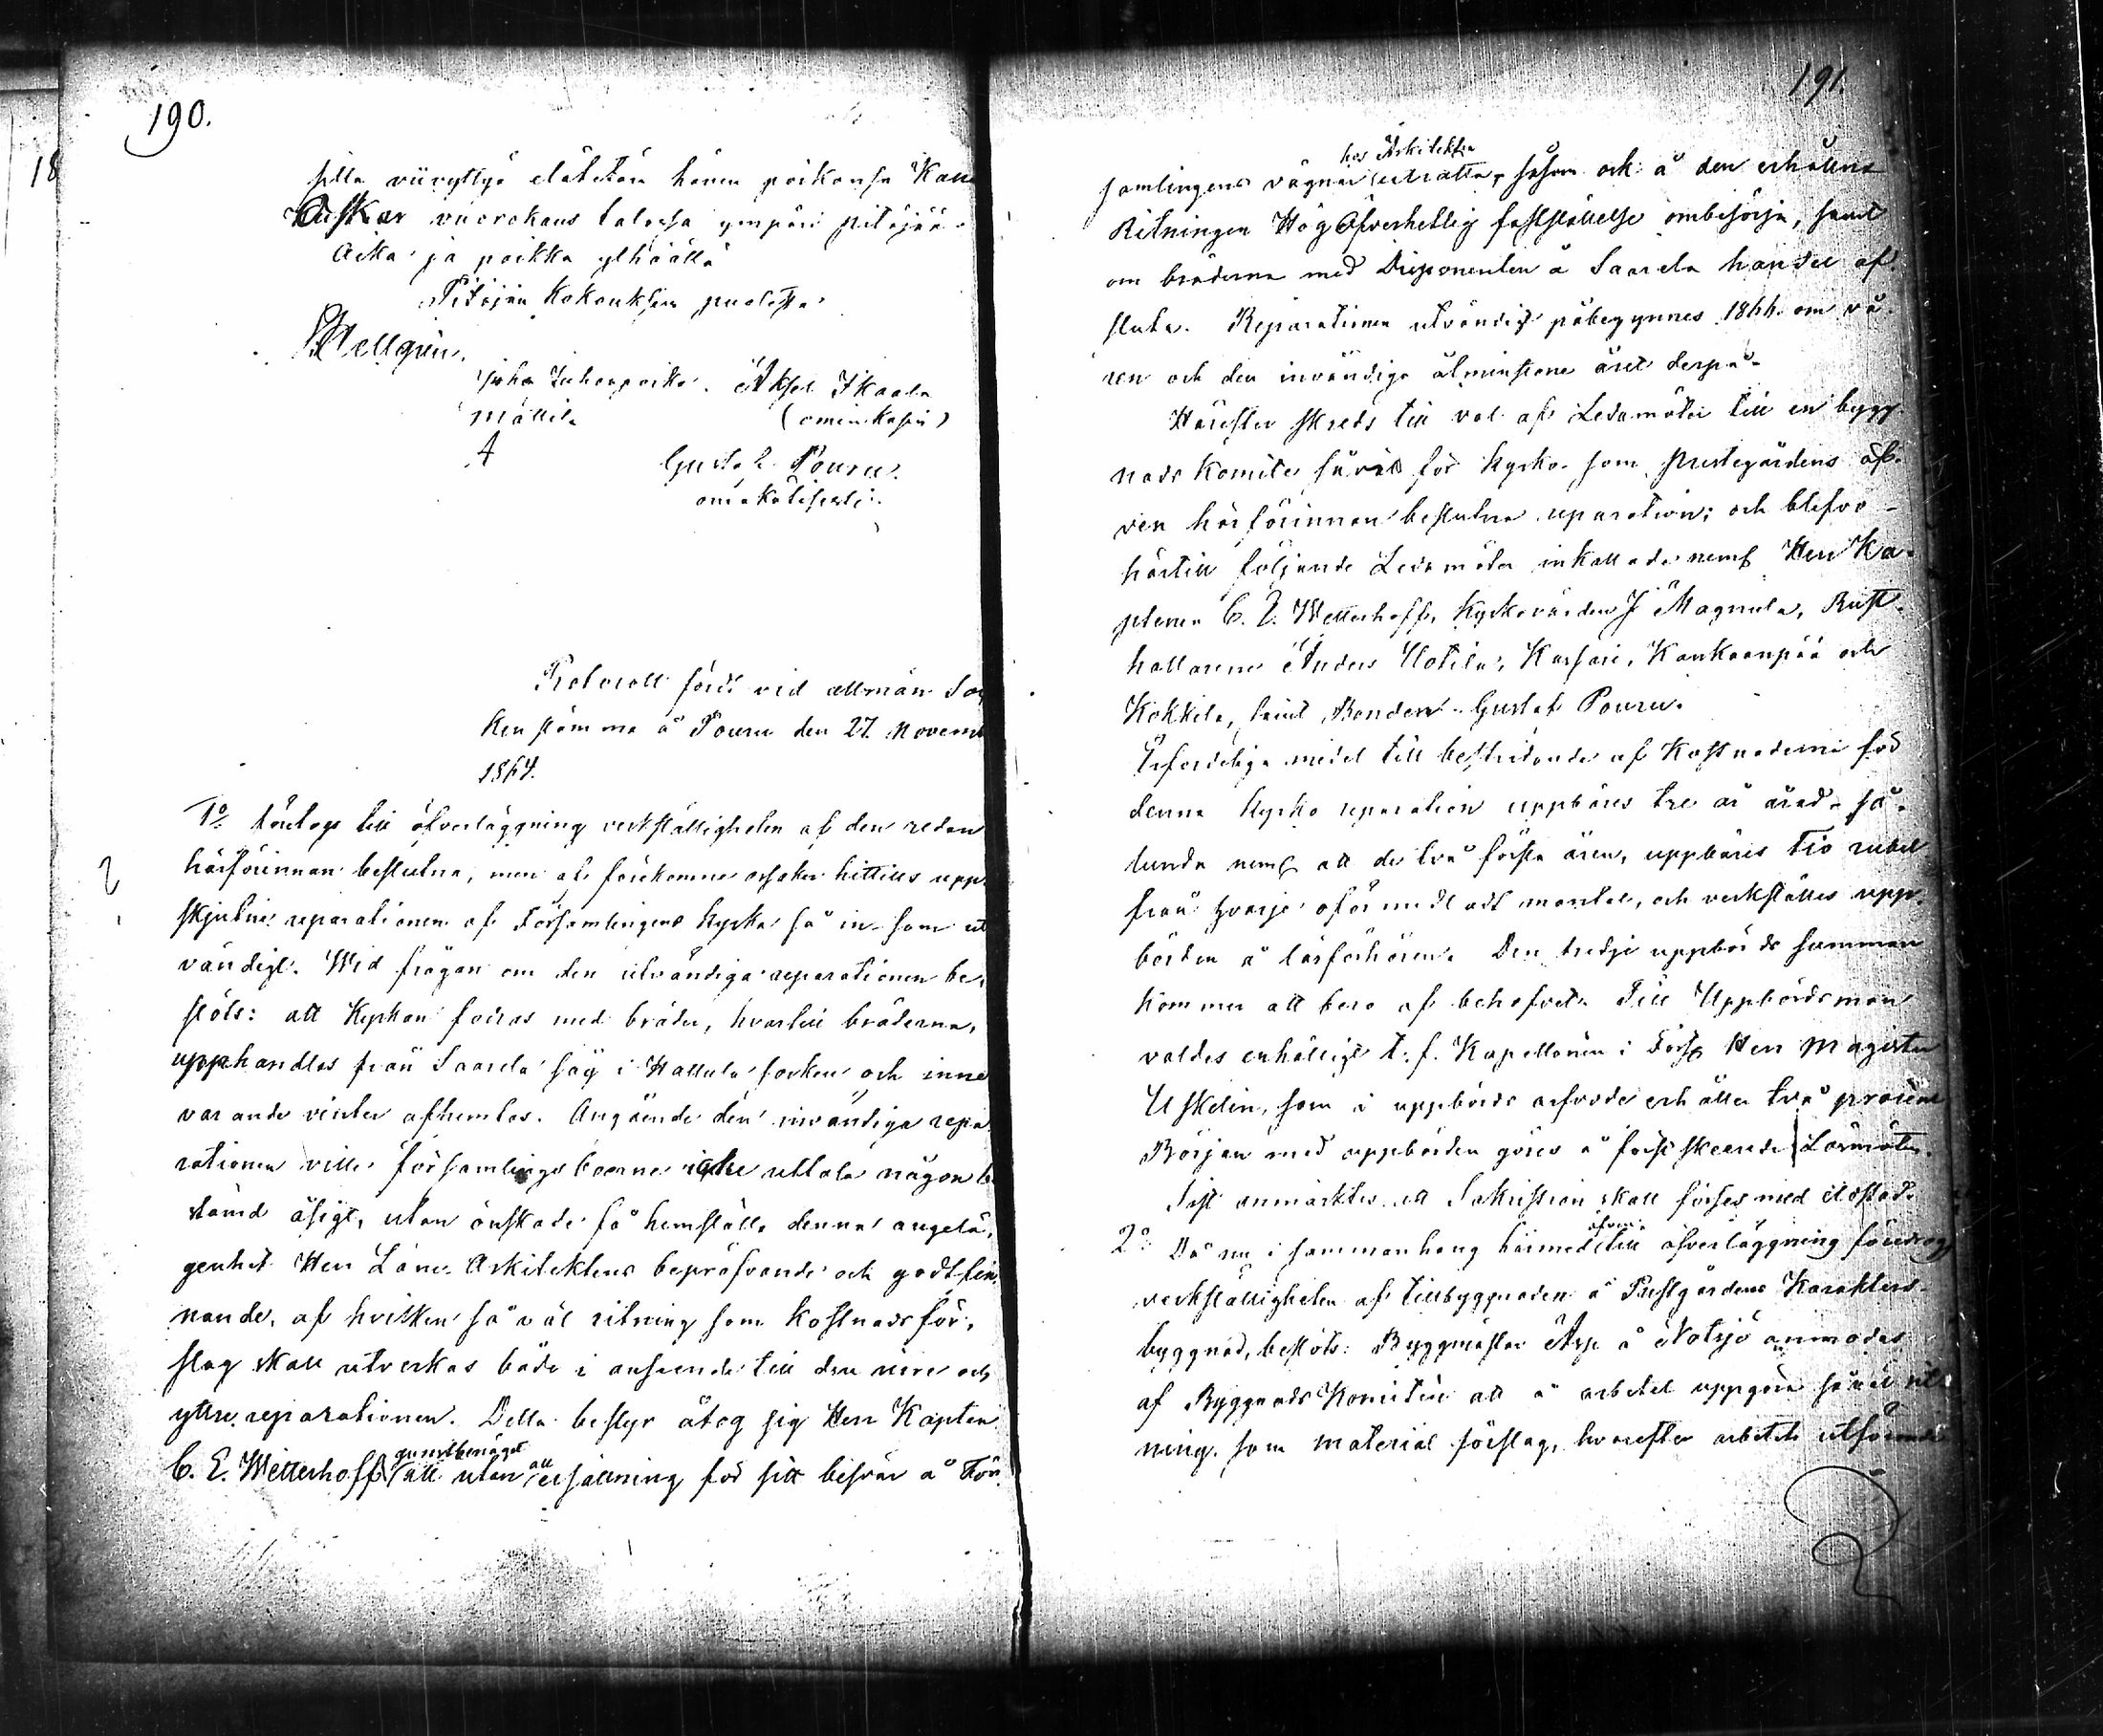 190.
sillä viivyttyä elätetään hänen poikansa Kalle
Oskar vuorokaus talossa ympäri pitäjää.
Aika ja paikka ylhäällä
Pitäjän kokouksen puolesta
Hellgrén.
Juha Juhonpoika Aksel Ikaala
Mattila (omin käsin)
Gustaf Pouru.
omakätisesti.
Protocoll fördt vid allmän Soc
kenstämma å Pouru den 27 Novemb
1864.
1o företogs till öfverläggning verkställigheten af den redan
härförinnan beslutna, men af förekomne orsaker hittills upp-
skjutne reparationen af Församlingens kyrka så in- som ut
vändigt. Wid frågan om den utvändiga reparationen be-
slöts: att Kyrkan fodras med bräder, hvartill bräderna,
upphandlas från Saarela såg i Hattula socken och inne
varande vinter afhemtas. Angående den invändiga repa
rationen ville församlingsboerne icke uttala någon be
stämd åsigt, utan önskade få hemställa denna angelä-
genhet Herr Läne Arkitektens bepröfvande och godtfin-
nande, af hvilken så väl ritning som kostnadsför-
slag skall utverkas både i anseende till den inre och
yttre reparationen. Detta bestyr åtog sig Herr Kapten
gunstbenäget all
C. E. Wetterhoff att utan ersättning för sitt besvär å För-
191.
hos Arkitekten
samlingens vägnar uträtta, såsom ock å den erhållna
Ritningen Hög Öfverhetlig fastställelse ombesörja, samt
om bräderna med Disponenten å Saarela handel af-
sluta. Reparationen utvändigt påbegynnes 1866 om vå-
ren och den invändiga åtminstone året derpå.
Härefter skreds till val af Ledamöter till en bygg
nads Komite såväl för kyrko- som prestegårdens äf-
ven härförinnan beslutna reparation; och blefvo
härtill följande Ledamöter inkallade neml. Herr Ka-
ptenen C. E. Wetterhoff, Kyrkovärden J Magnula, Rust-
hållarene Anders Uotila, Karsari, Kankaanpää och
Kokkila, samt Bonden Gustaf Pouru.
Erforderliga medel till bestridande af Kostnaderna för
denna kyrko reparation uppbäres tre år å rad, så-
lunda neml. att de två första åren, uppbäres tio rubel
från hvarje oförmedladt mantal, och verkställes upp-
börden å läsförhören. Den tredje uppbörds summan
kommer att bero af behofvet. Till Uppbördsman
valdes enhälligt t. f. Kapellanen i Förs. Herr Magister
Uskelin, som i uppbörds arfvode erhåller två procent
Början med uppbörden göres å först skeende Läsmöten.
Sist anmärktes att Sakristian skall förses med eldstad.
äfven
2o Då nu i sammanhang härmed till öfverläggning föredrogs
verkställigheten af tillbyggnaden å Prestgårdens Karakters-
byggnad, beslöts: Byggmästar Arpe å Notsjö anmodas
af Byggnads Komitén att å arbetet uppgöra såväl rit-
ning som material förslag, hvarefter arbetets utförande